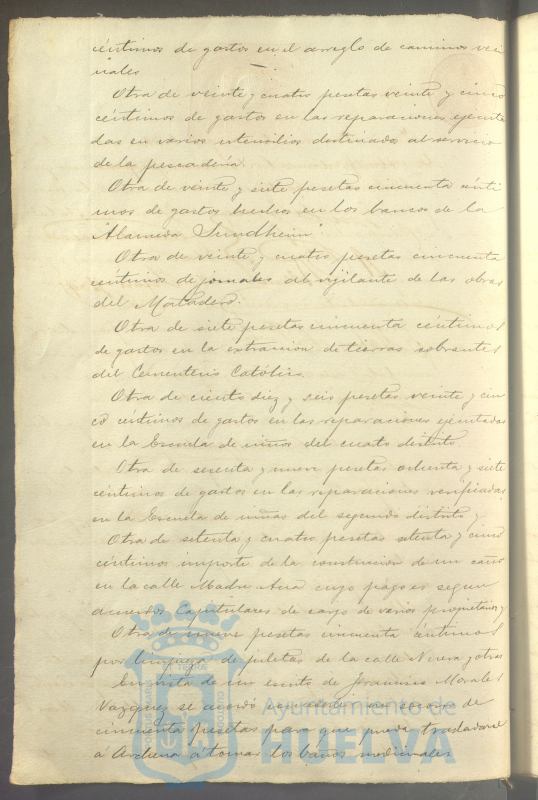 céntimos de gastos en el arreglo de caminos veci
nales
Otra de veinte y cuatro pesetas veinte y cinco
céntimos de gastos en las reparaciones ejecuta
das en varios utensilios destinados al servicio
de la pescadería.
Otra de veinte y siete pesetas cincuenta cénti
mos de gastos hechos en los bancos de la
"Alameda Sundheim".
Otra de veinte y cuatro pesetas cincuenta
céntimos de jornales del vijilante de las obras
del Matadero.
Otra de siete pesetas cincuenta céntimos
de gastos en la estracion de tierras sobrantes
del Cementerio Católico.
Otra de ciento diez y seis pesetas veinte y cin
co céntimos de gastos en las reparaciones ejecutadas
en la Escuela de niños del cuarto distrito
Otra de sesenta y nueve pesetas ochenta y siete
céntimos de gastos en las reparaciones verificadas
en la Escuela de niñas del segundo distrito y
Otra de setenta y cuatro pesetas setenta y cinco
céntimos importe de la construcion de un caño
en la calle Madre Ana cuyo pago es segun
acuerdos Capitulares de cargo de varios propietarios y
Otra de nueve pesetas cincuenta céntimos
por limpieza de de la calle Nueva y otras
En vista de un escrito de Francisco Morales
Vazquez se acordó concederle un socorro de
cincuenta pesetas para que pueda trasladarse
á Archena á tomar los baños medicinales
Ayuntamiento de
HUELVA